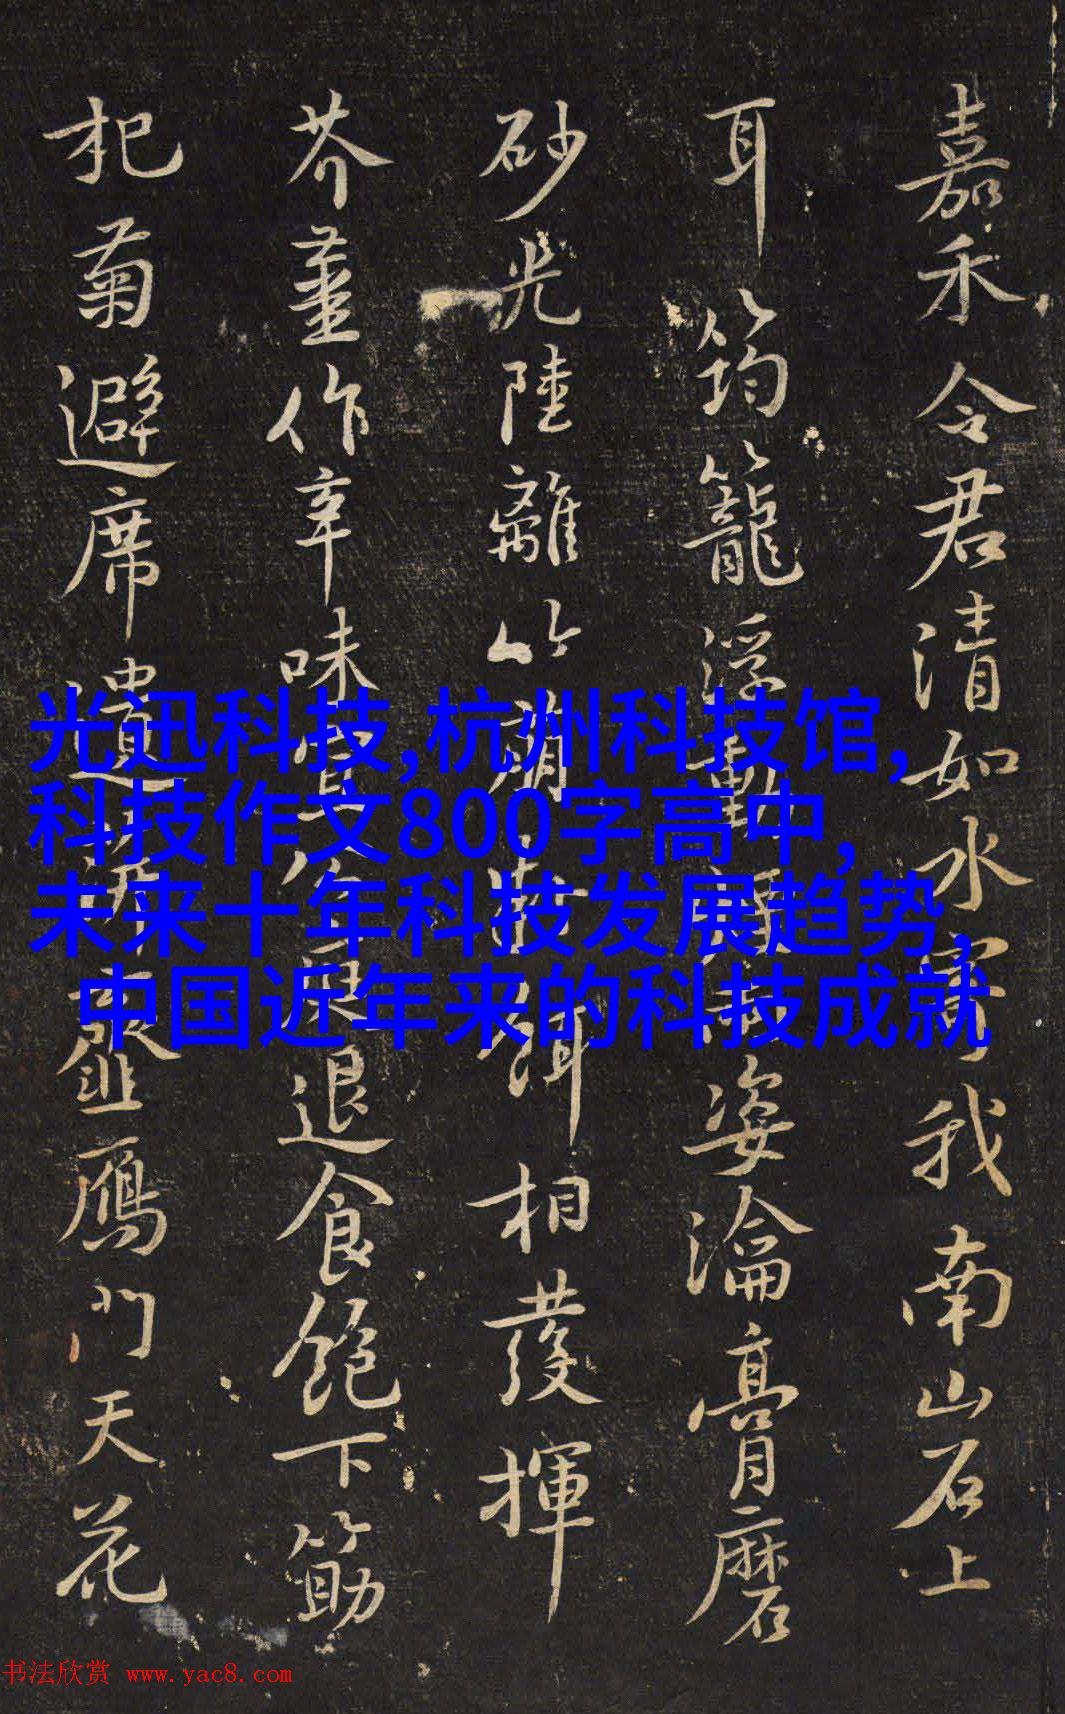 嘉禾令君清如水寄我南山石上
耳筠籠浮動姿瀹膏磨
砂光陸離竹萌相發揮
芥薑作辛味宜退食飽下筯
杞菊避席遺鴈門天花
光迅科技,杭州科技馆,
科技作文800字高中,
未来十年科技发展趋势,
中国近年来的科技成就
书法欣赏 www.yac8.com